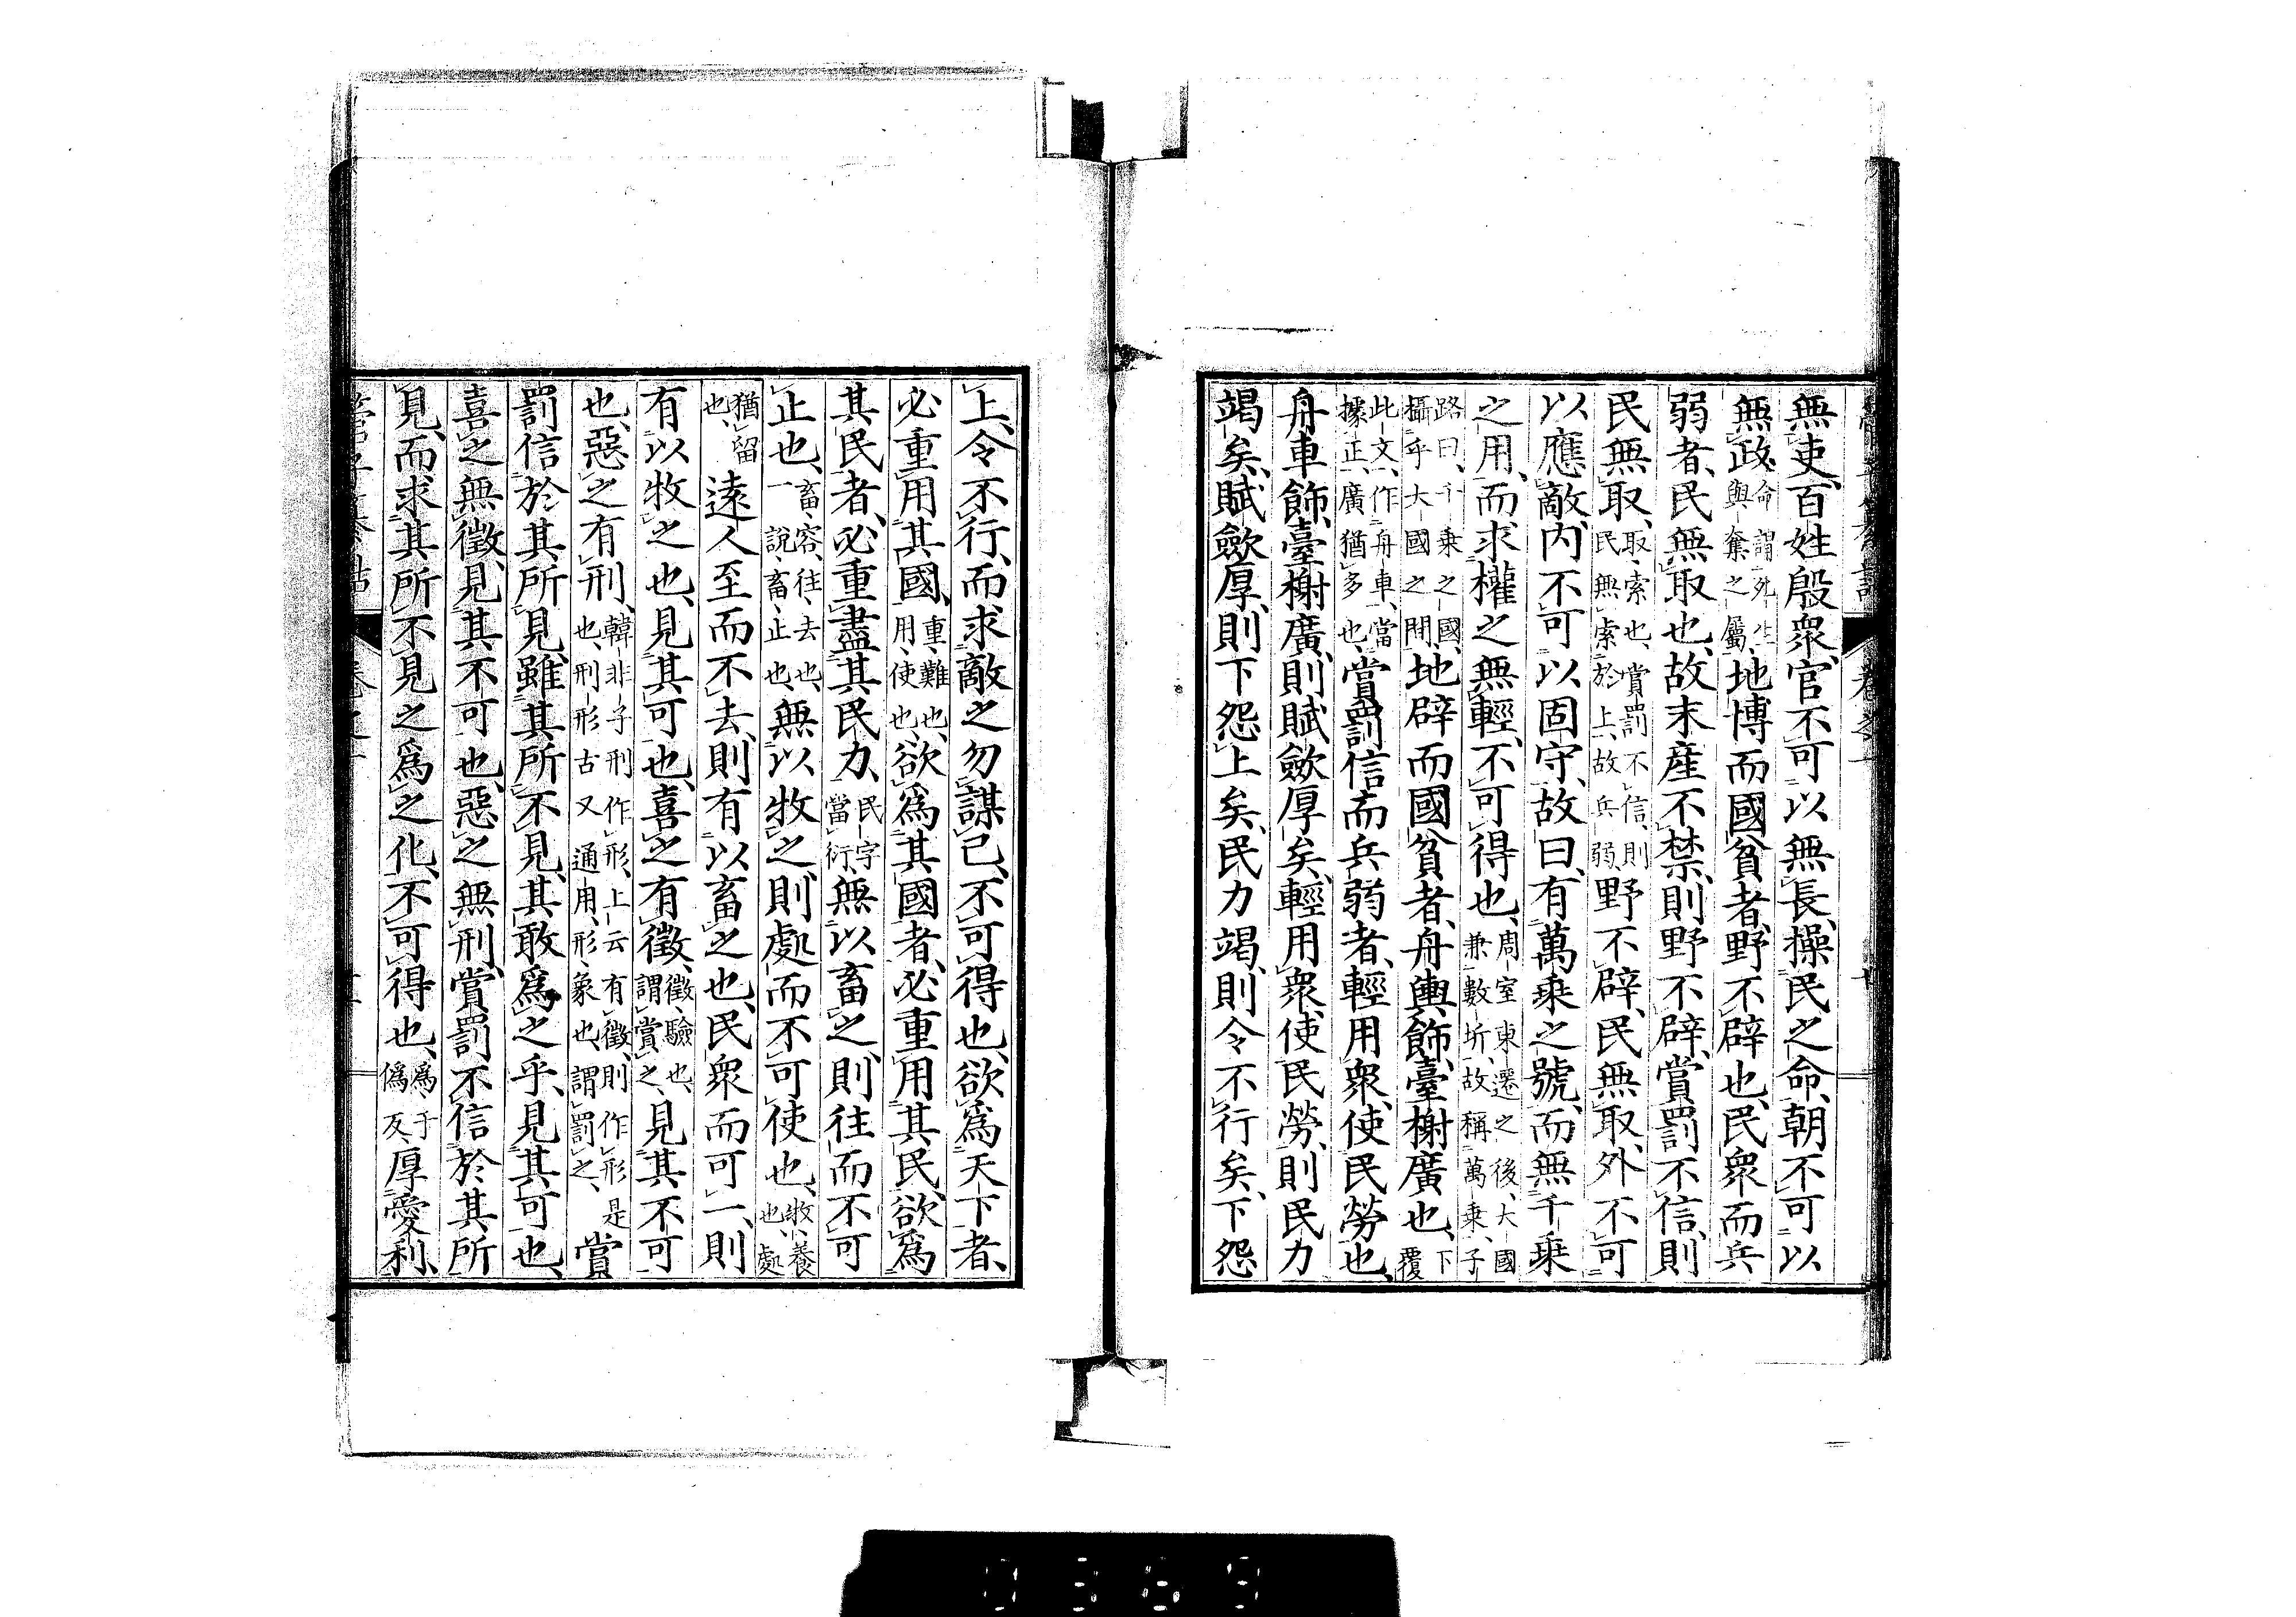 無吏、百姓殷衆、官不可以無長、操民之命、朝不可以
無政、命謂死生與奪之屬、地博而國貧者、野不辟也、民衆而兵
弱者、民無取也、故末産不禁、則野不辟、賞罰不信、則
民無取、取、索也、賞罰不信、則民無索於上、故兵弱、野不辟、民無取、外不可
以應敵、内不可以固守、故曰、有萬乘之號、而無千乘
之用、而求權之無輕、不可得也、周室東遷之後、大國兼數圻、故稱萬乘、子
路曰、千乘之國、攝乎大國之間、地辟而國貧者、舟輿飾、臺榭廣也、下覆
此文、作舟車、當據正、廣猶多也、賞罰信而兵弱者、輕用衆、使民勞也、
舟車飾、臺榭廣、則賦斂厚矣、輕用衆、使民勞、則民力
竭矣、賦斂厚、則下怨上矣、民力竭、則令不行矣、下怨
上、令不行、而求敵之勿謀己、不可得也、欲爲天下者、
必重用其國、重、難也、用、使也、欲爲其國者、必重用其民、欲爲
其民者、必重盡其民力、民字當衍、無以畜之、則往而不可
止也、畜、容、往、去也、一說、畜、止也、無以牧之、則處而不可使也、牧、養也、處
猶留也、遠人至而不去、則有以畜之也、民衆而可一、則
有以牧之也、見其可也、喜之有徵、徵、驗也、謂賞之、見其不可
也、惡之有刑、韓非子刑作形、上云有徵、則作形是也、刑形古又通用、形、象也、謂罰之、賞
罰信於其所見、雖其所不見、其敢爲之乎、見其可也、
喜之無徵、見其不可也、惡之無刑、賞罰不信於其所
見、而求其所不見之爲之化、不可得也、爲、于僞反、厚愛利、